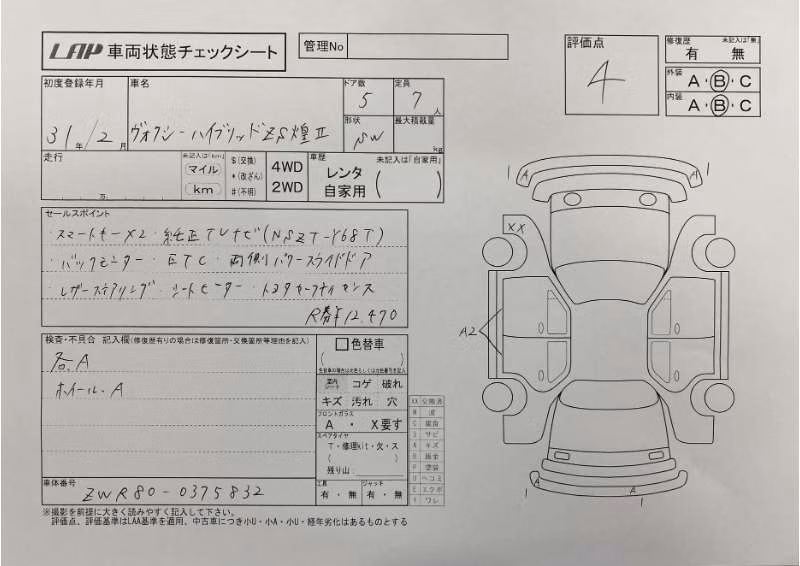 LAP 車両状態チェックシート
管理No
評価点
4
修復歴 未記入は「無」
有 無
外装
A・B・C
内装
A・B・C
初度登録年月
31年/2月
車名
ヴォクシーハイブリッドZS煌Ⅱ
ドア数
5
定員
7人
形状
SW
最大積載量
kg
走行
万
未記入は「km」
マイル
km
$(交換)
*(改ざん)
#(不明)
4WD
2WD
車歴 未記入は「自家用」
レンタ
自家用 ( )
セールスポイント
・スマートキーX2・純正TVナビ(NSZT-Y68T)
・バックモニター・ETC・両側パワースライドドア
・レザーステアリング・シートヒーター・トヨタセーフティセンス
R券¥12,470
検査・不具合 記入欄(修復歴有りの場合は修復箇所・交換箇所等理由を記入)
各A
ホイール.A
色替車
( )
室内シート コゲ 破れ
キズ 汚れ 穴
フロントガラス
A ・ X要す
スペアタイヤ
T・修理kit・欠・ス
( )
残り山:
工具
有・無
ジャッキ
有・無
XX 交換済
W 波
C 腐食
S サビ
A キズ
B 板金
P 塗装
U ヘコミ
E エクボ
Y ワレ
車体番号
ZWR80-0375832
※撮影を前提に大きく読みやすく記入して下さい。
評価点、評価基準はLAA基準を適用、中古車につき小U・小A・小U・経年劣化はあるものとする
A
A
XX
A2
A
A